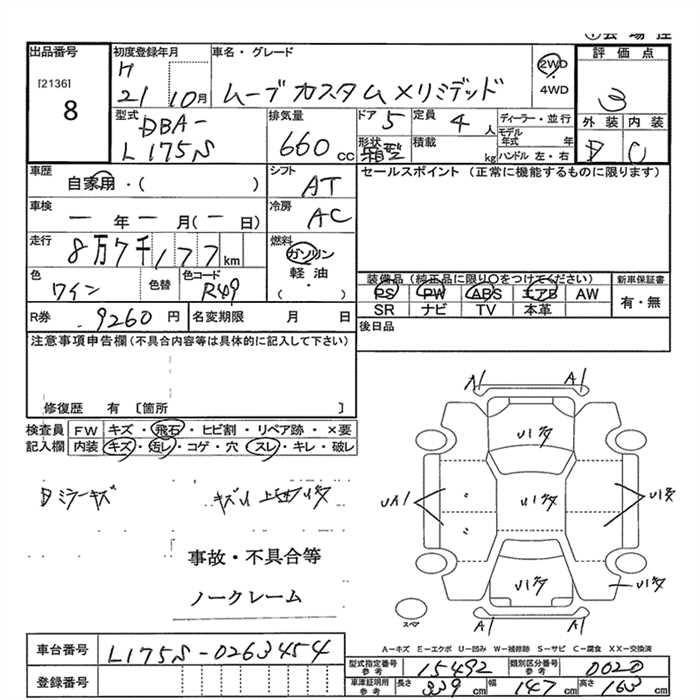 ① 会 場 控
出品番号
[2136]
8
初度登録年月
H
21 10月
車名・グレード
ムーブカスタムメリミデッド
2WD
・
4WD
評価点
3
外装 内装
D C
型式
DBA-
L175S
排気量
660 cc
ドア 5
形状 箱型
定員 4 人
積載 kg
ディーラー・並行
モデル年式 年
ハンドル 左・右
車歴
自家用・( )
シフト
AT
セールスポイント (正常に機能するものに限ります)
車検
― 年 ― 月( ― 日)
冷房
AC
走行
8万7千177km
燃料
ガソリン
軽油
・
( )
色
ワイン
色替
色コード
R49
装備品 (純正品に限り○をつけてください)
PS PW ABS エアB AW
SR ナビ TV 本革
新車保証書
有・無
R券 9260 円
名変期限 月 日
後日品
注意事項申告欄 (不具合内容等は具体的に記入して下さい)
修復歴 有 〔箇所 〕
検査員記入欄
FW キズ・飛石・ヒビ割・リペア跡・×要
内装 キズ・汚レ・コゲ・穴・スレ・キレ・破レ
A1 A1
UA1
A1 A1
スペア
事故・不具合等
ノークレーム
A－キズ E－エクボ U－凹み W－補修跡 S－サビ C－腐食 XX－交換済
車台番号 L175S-0263454
登録番号
型式指定番号 参考 15492
類別区分番号 参考 0020
車庫証明用 参考 長さ 339 cm 幅 147 cm 高さ 163 cm